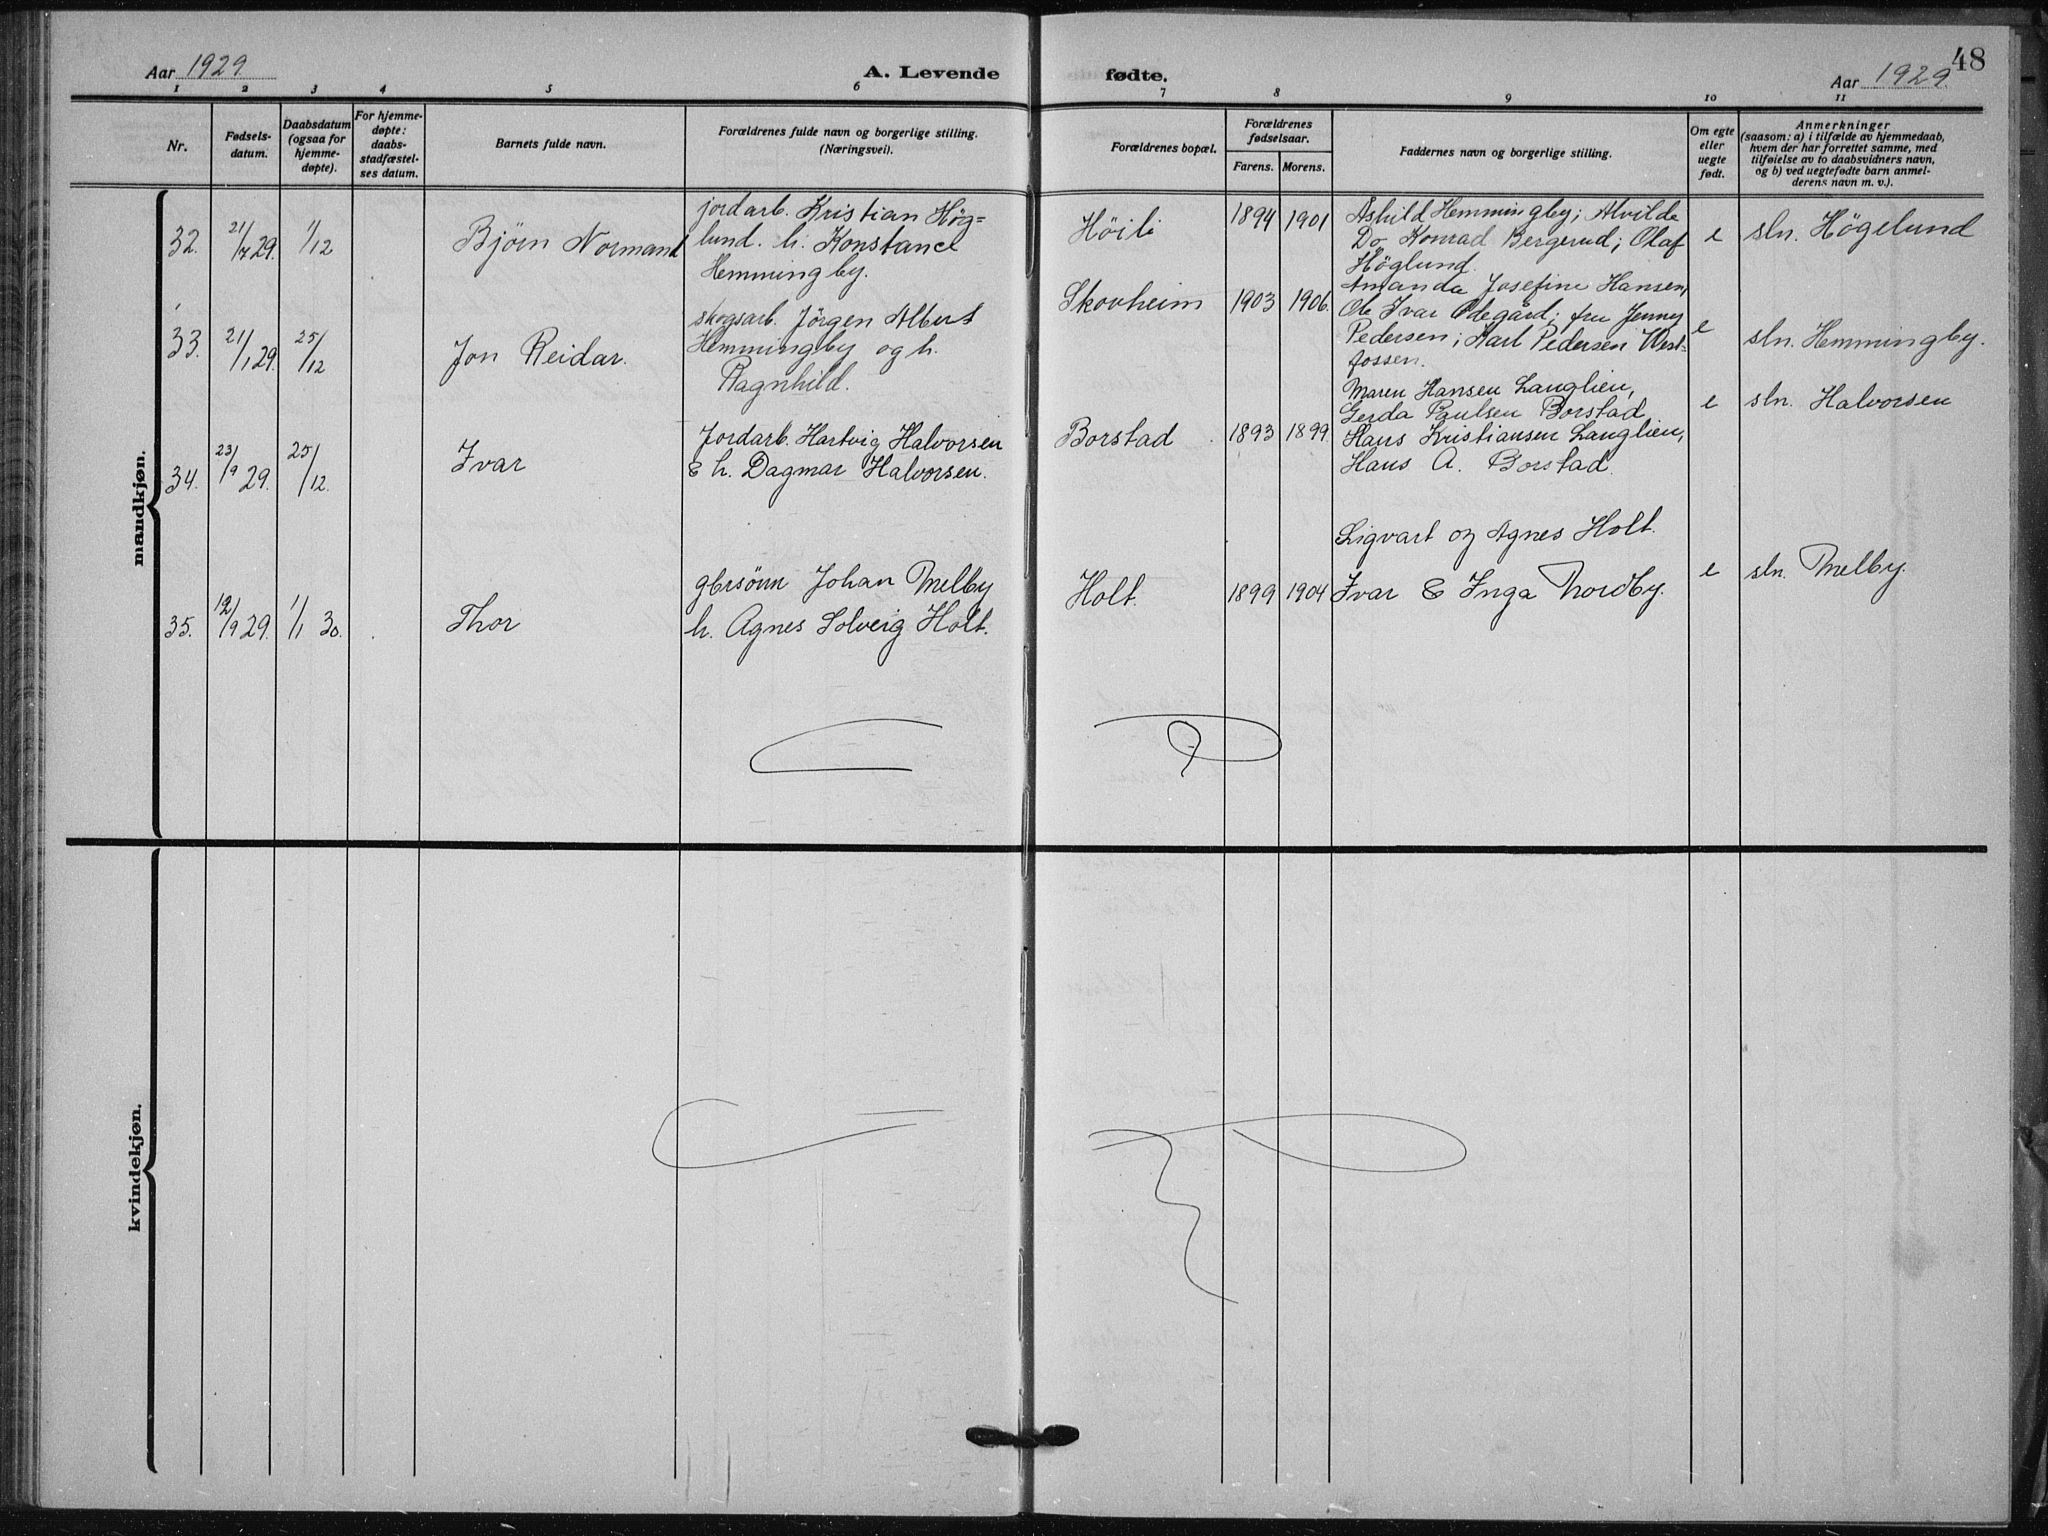 48
Aar 1929
A. Levende
fødte.
Aar 1929
1 2 3 4 5 6 7 8 9 10 11
Nr.
Fødsels-
datum.
Daabsdatum
(ogsaa for
hjemme-
døpte).
For hjemme-
døpte:
daabs-
stadfæstel-
ses datum.
Barnets fulde navn.
Forældrenes fulde navn og borgerlige stilling.
(Næringsvei).
Forældrenes bopæl.
Forældrenes
fødselsaar.
Farens. Morens.
Faddernes navn og borgerlige stilling.
Om egte
eller
uegte
født.
Anmerkninger
(saasom: a) i tilfælde av hjemmedaab,
hvem der har forrettet samme, med
tilføielse av to daabsvidners navn,
og b) ved uegtefødte barn anmel-
derens navn m. v.).
mandkjøn.
32. 21/7 29. 1/12 Bjørn Normand
jordarb. Kristian Høg-
lund. h. Konstance
Hemmingby.
Høili 1894 1901
Ashild Hemmingby; Alvilde
Do Konrad Bergerud; Olaf
Höglund.
e sln. Högelund
33. 21/1 29. 25/12 Jon Reidar.
skogsarb. Jörgen Albert
Hemmingby og h.
Ragnhild.
Skovheim 1903 1906.
Amanda Josefine Hansen,
Ole Ivar Ödegård; fru Jenny
Pedersen; Karl Pedersen West-
fossen.
e sln. Hemmingby.
34. 23/9 29. 25/12. Ivar
Jordarb. Hartvig Halvorsen
& h. Dagmar Halvorsen.
Borstad 1893 1899.
Maren Hansen Langlien,
Gerda Paulsen Borstad
Hans Kristiansen Langlien,
Hans A. Borstad.
e sln. Halvorsen
35. 12/9 29. 1/1 30. Thor
gbrsönn Johan Melby
h. Agnes Solveig Holt.
Holt. 1899 1904
Sigvart og Agnes Holt.
Ivar & Inga Nordby.
e sln. Melby.
kvindekjøn.